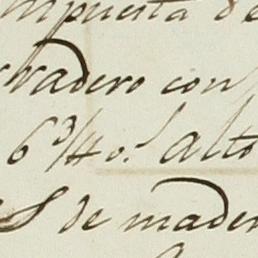 mpuesta de
rradero con
6 3/4 o.s alto
S de mader